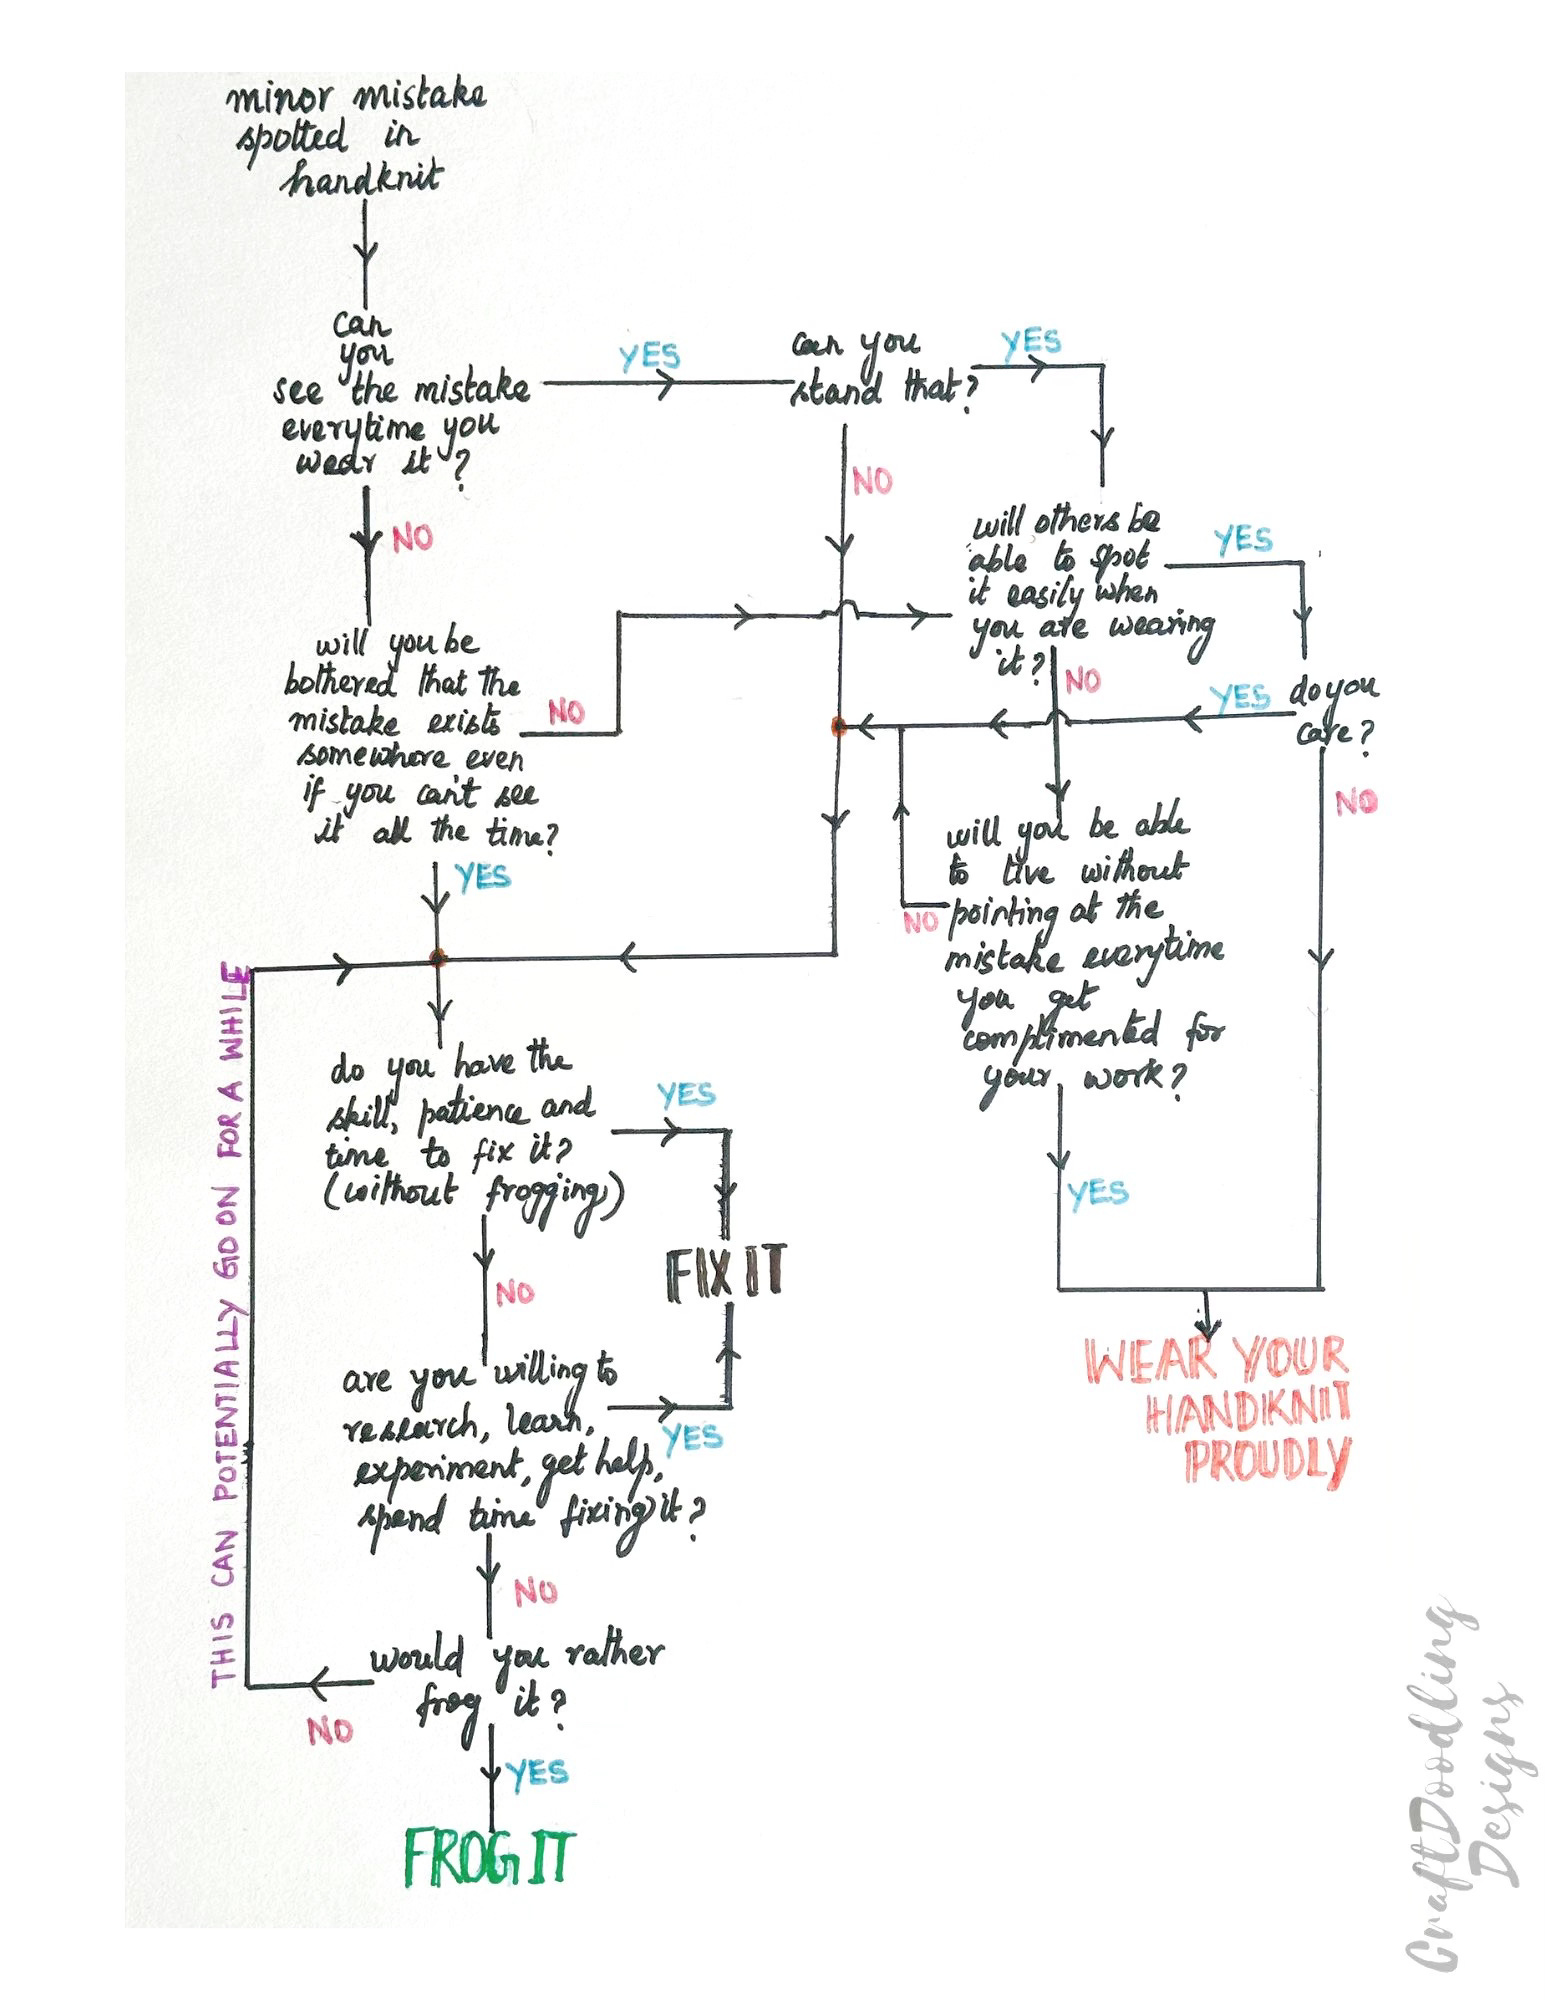 minor mistake
spotted in
handknit
can
you
see the mistake
everytime you
wear it?
YES
can you
stand that?
YES
NO
NO
will others be
able to spot
it easily when
you are wearing
it?
YES
NO
do you
care?
YES
NO
will you be
bothered that the
mistake exists
somewhere even
if you can't see
it all the time?
NO
YES
will you be able
to live without
pointing at the
mistake everytime
you get
complimented for
your work?
NO
YES
WEAR YOUR
HANDKNIT
PROUDLY
do you have the
skill, patience and
time to fix it?
(without frogging)
YES
NO
FIX IT
are you willing to
research, learn,
experiment, get help,
spend time fixing it?
YES
NO
would you rather
frog it?
NO
YES
THIS CAN POTENTIALLY GO ON FOR A WHILE
FROG IT
CraftDoodling
Designs